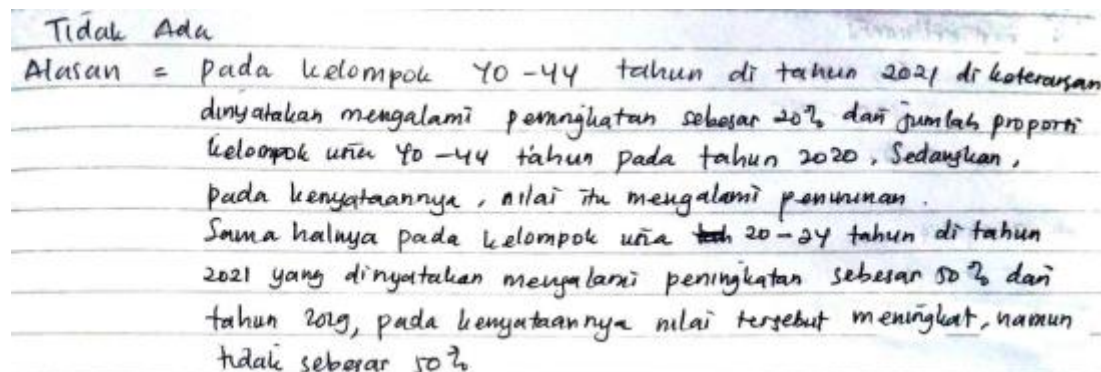 Tidak Ada
Alasan = pada kelompok 40-44 tahun di tahun 2021 di keterangan
dinyatakan mengalami peningkatan sebesar 20% dari jumlah proporsi
kelompok usia 40-44 tahun pada tahun 2020, Sedangkan,
pada kenyataannya, nilai itu mengalami penurunan.
Sama halnya pada kelompok usia 20-24 tahun di tahun
2021 yang dinyatakan mengalami peningkatan sebesar 50% dari
tahun 2019, pada kenyataannya nilai tersebut meningkat, namun
tidak sebesar 50%